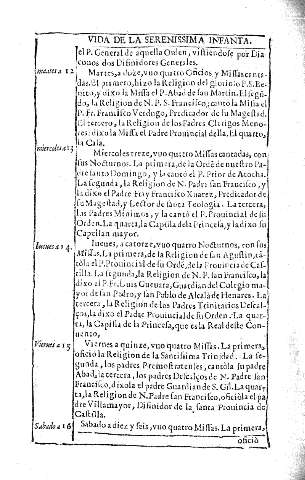 VIDA DE LA SERENISSIMA INFANTA,
el P. General de aquella Orden, vistiendose por Dia
conos dos Difinidores Generales.
martes a 12
Martes, a doze, vuo quatro Oficios, y Missas canta-
das. El primero, hizo la Religion del glorioso P. S. Be-
nito, y dixo la Missa el P. Abad de san Martin. El segũ-
do, la Religion de N. P. S. Francisco; cantò la Missa el
P. Fr. Francisco Verdugo, Predicador de su Magestad.
El tercero, la Religion de los Padres Clerigos Meno-
res: dixo la Missa el Padre Prouincial della. El quarto,
la Cala.
miercoles a 13
Miercoles treze, vuo quatro Missas cantadas, con
sus Nocturnos. La primera, de la Ordẽ de nuestro Pa-
dre santo Domingo, y la cantò el Prior de Atocha.
La segunda, la Religion de N. Padre san Francisco, y
la dixo el Padre Fray Francisco Xuarez, Predicador de
su Magestad, y Lector de sacra Teologia. La tercera,
los Padres Minimos, y la cantó el P. Prouincial de su
Orden. La quarta, la Capilla de la Princesa, y la dixo su
Capellan mayor.
Iueues a 14.
Iueues, a catorze, vuo quatro Nocturnos, con sus
Missas. La primera, de la Religion de san Agustin, cã-
tòla el P. Prouincial de su Ordẽ, de la Prouincia de Cas-
tilla. La segunda, la Religion de N. P. san Francisco, la
dixo el P. Fr. Luis Guerra, Guardian del Colegio ma-
yor de san Pedro, y san Pablo de Alcalà de Henares. La
tercera, la Religion de los Padres Trinitarios Descal-
ços, la dixo el Padre Prouincial de su Orden. La quar-
ta, la Capilla de la Princesa, que es la Real deste Con-
uento.
Viernes a 15
Viernes a quinze, vuo quatro Missas. La primera,
oficiò la Religion de la Santissima Trinidad. La se-
gunda, los padres Premostratenses, cantòla su padre
Abad, la tercera, los padres Descalços de N. Padre san
Francisco, dixola el padre Guardian de S. Gil. La quar-
ta, la Religion de N. Padre san Francisco, oficiòla el pa-
dre Villamayor, Difinidor de la santa Prouincia de
Castilla.
Sabado a 16
Sabado a diez y seis, vuo quatro Missas. La primera,
oficiò